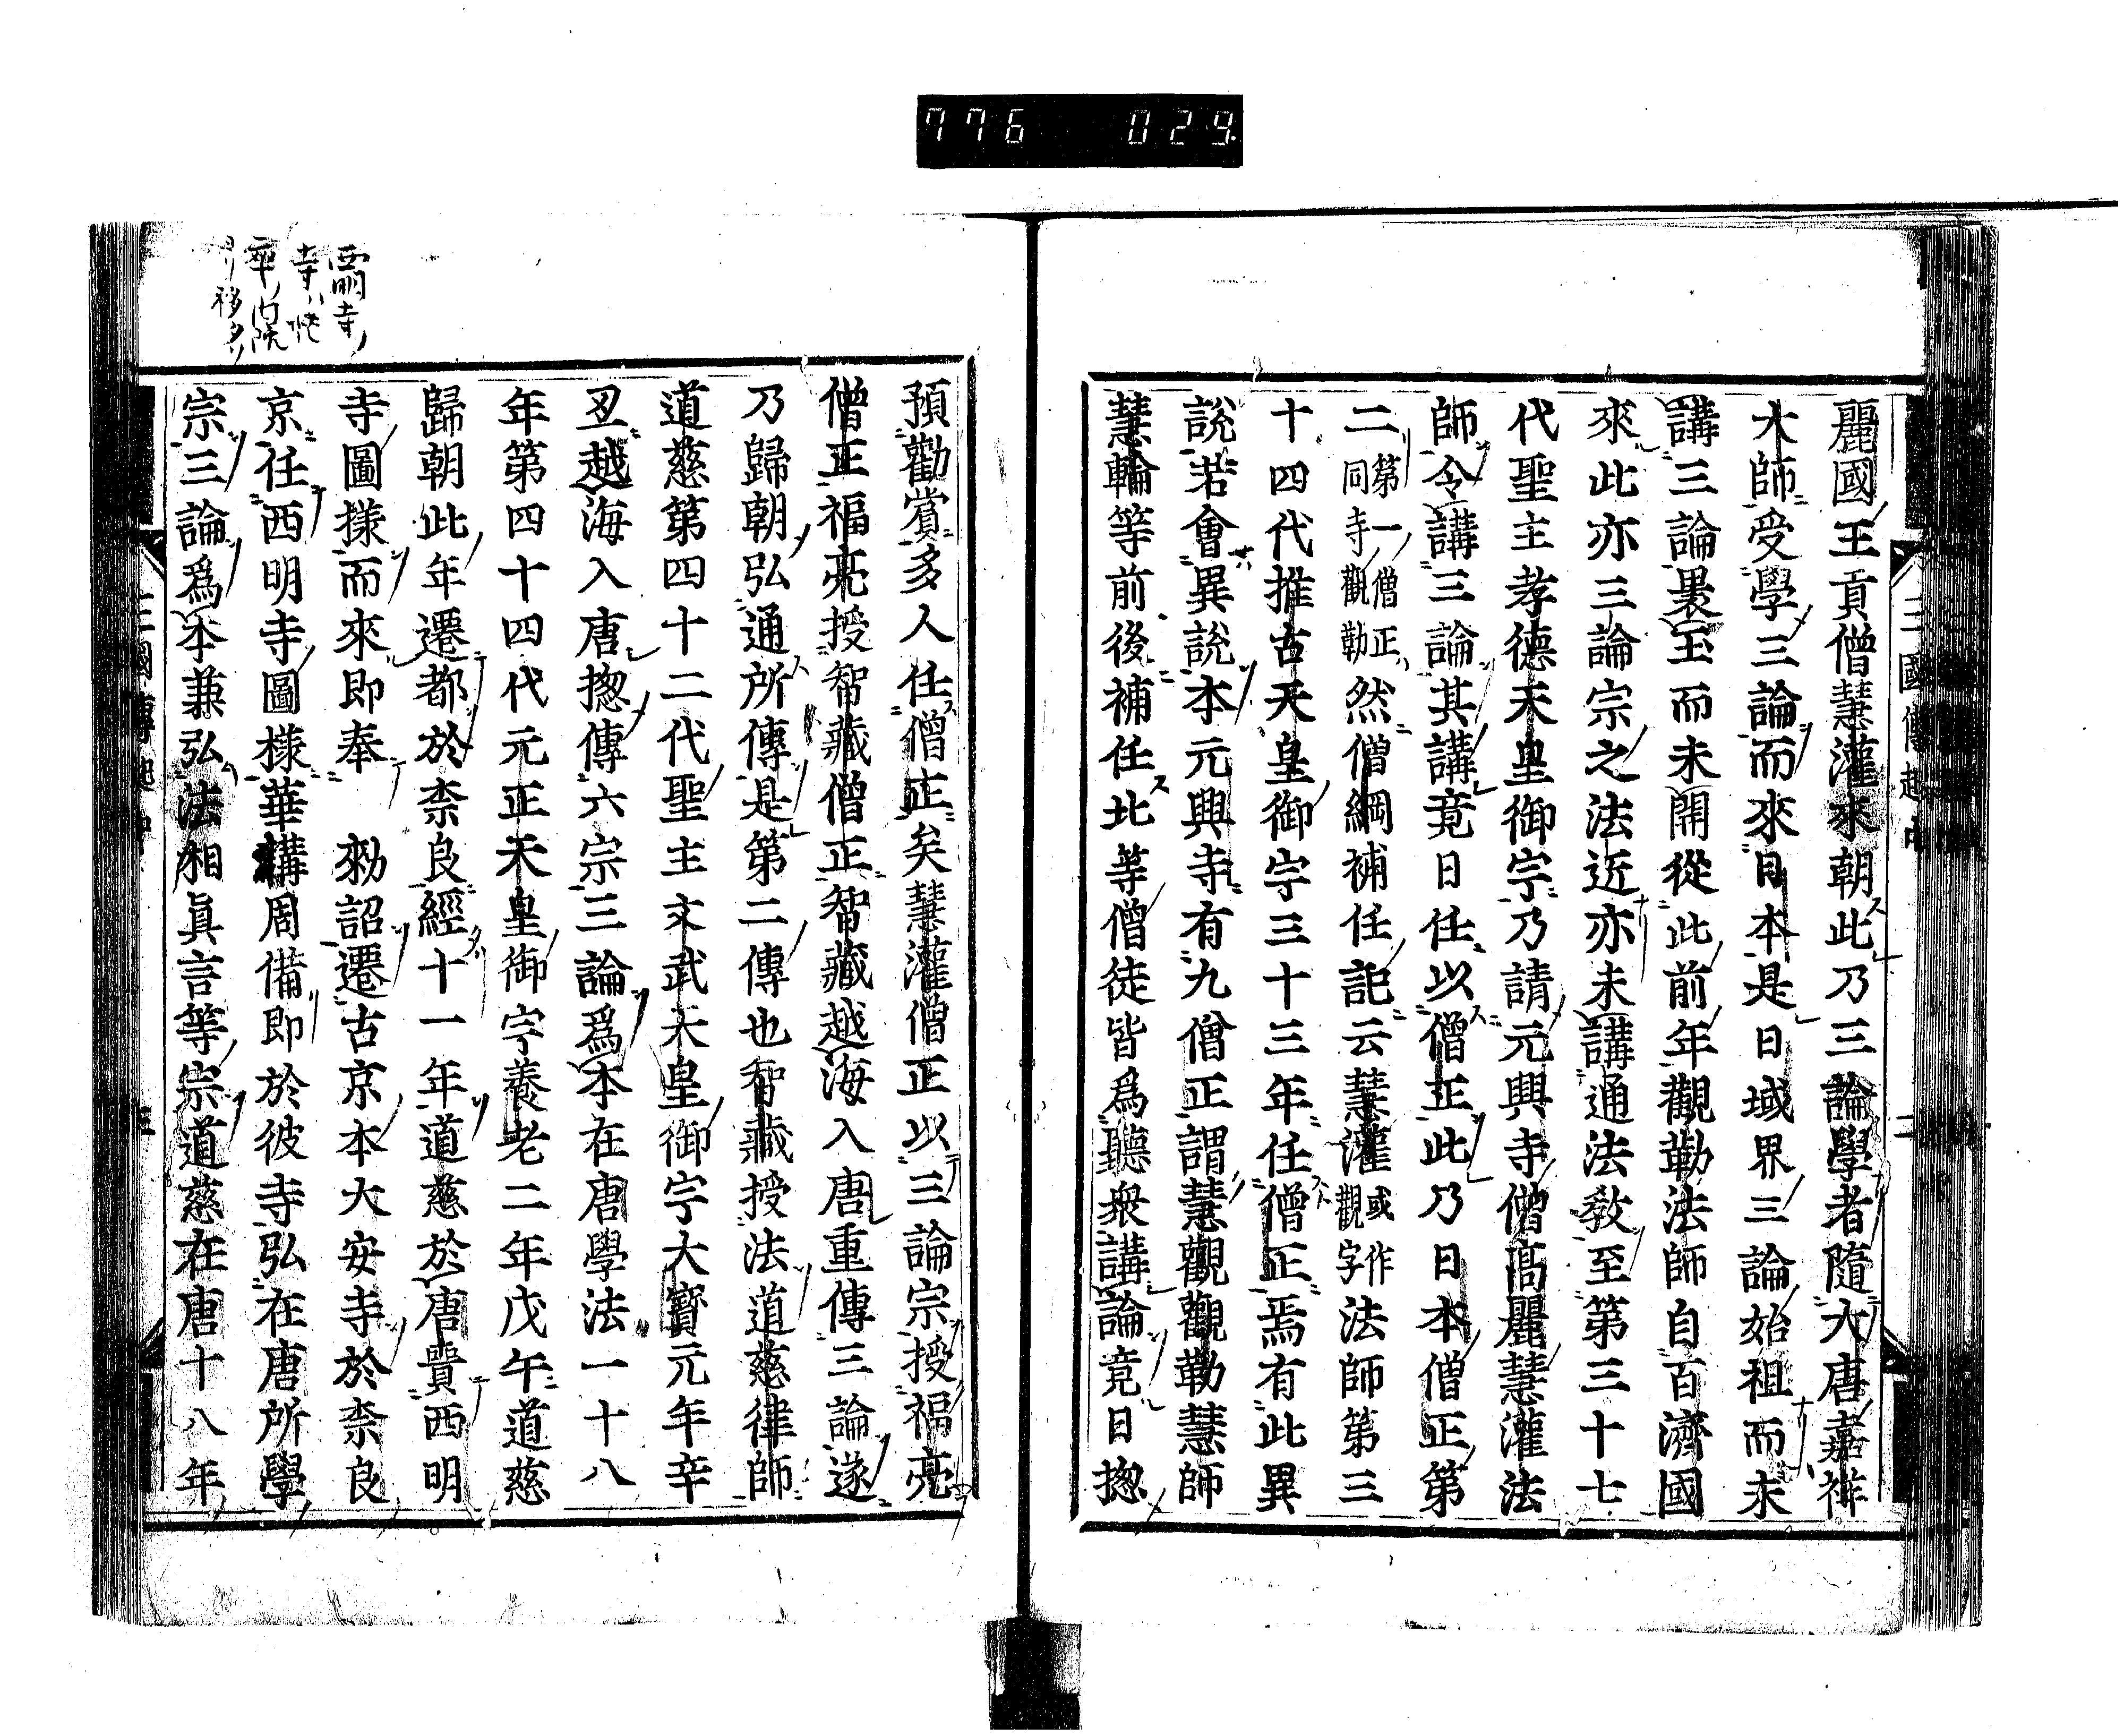 776 029
麗國王貢僧慧灌來朝此乃三論學者隨大唐嘉祥
大師受學三論而來日本是日域界三論始祖而未
講三論裹玉而未開從此前年觀勒法師自百濟國
來此亦三論宗之法匠亦未講通法敎至第三十七
代聖主孝德天皇御宇乃請元興寺僧高麗慧灌法
師令講三論其講竟日任以僧正此乃日本僧正第
二第一僧正同寺觀勒然僧綱補任記云慧灌或作觀字法師第三
十四代推古天皇御宇三十三年任僧正焉有此異
說若會異說本元興寺有九僧正謂慧觀觀勒慧師
慧輪等前後補任北等僧徒皆爲聽衆講論竟日揔
預勸賞多人任僧正矣慧灌僧正以三論宗授福亮
僧正福亮授智藏僧正智藏越海入唐重傳三論遂
乃歸朝弘通所傳是第二傳也智藏授法道慈律師
道慈第四十二代聖主文武天皇御宇大寶元年辛
丑越海入唐揔傳六宗三論爲本在唐學法一十八
年第四十四代元正天皇御宇養老二年戊午道慈
歸朝此年遷都於柰良經十一年道慈於唐賷西明
寺圖㨾而來即奉　勑詔遷古京本大安寺於柰良
京任西明寺圖樣華構周備即於彼寺弘在唐所學
宗三論爲本兼弘法相眞言等宗道慈在唐十八年